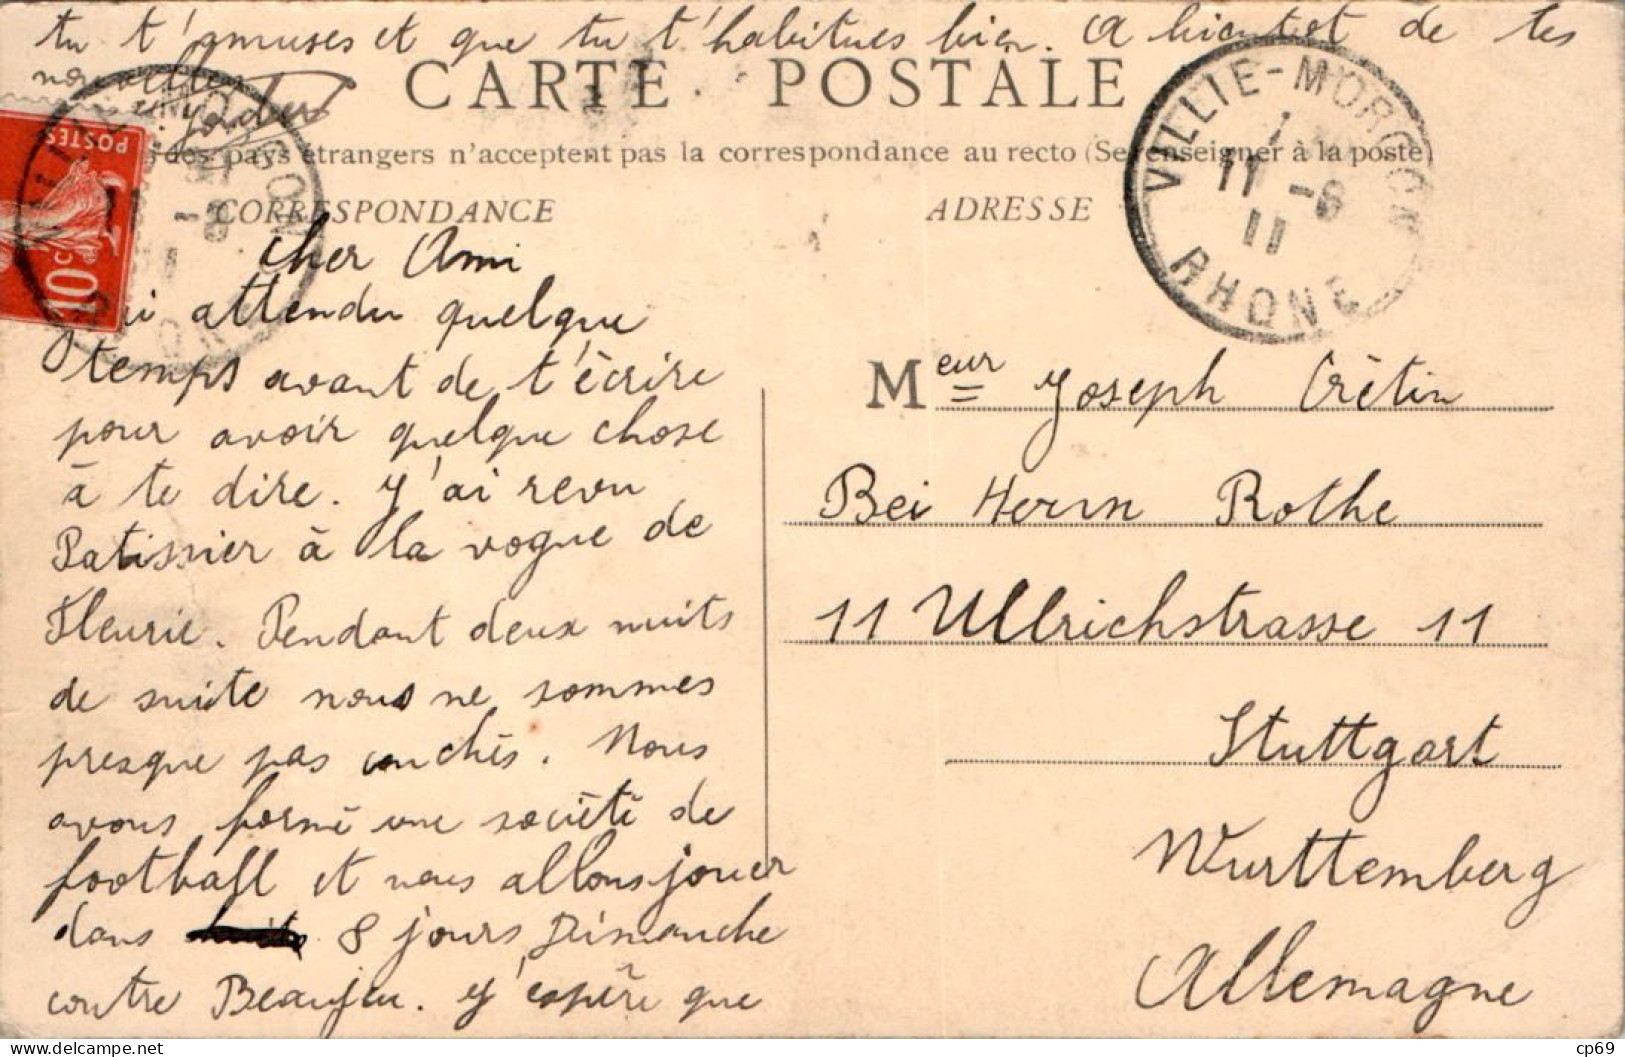 tu t'amuses et que tu t'habitues bien. A bientot de tes
nouvelles
CARTE POSTALE
des pays étrangers n'acceptent pas la correspondance au recto (Se renseigner à la poste)
CORRESPONDANCE
ADRESSE
POSTES
10c
VILLIE-MORGON
11 -6
11
RHONE
Cher Ami
J'ai attendu quelque
temps avant de t'écrire
pour avoir quelque chose
à te dire. J'ai revu
Patissier à la vogue de
Fleurie. Pendant deux nuits
de suite nous ne sommes
presque pas couchés. Nous
avons formé une société de
football et nous allons jouer
dans 8 jours Dimanche
contre Beaujeu. J'espère que
Meur Joseph Crétin
Bei Herrn Rothe
11 Ullrichstrasse 11
Stuttgart
Wurttemberg
Allemagne
cp69